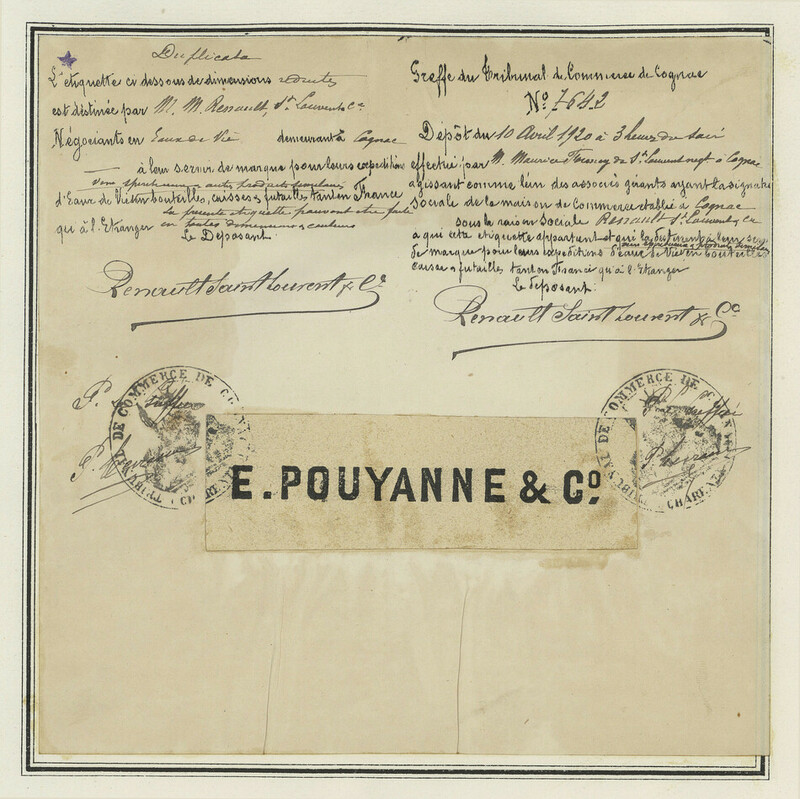 Duplicata
L'étiquette ci dessous de dimensions réduites
est destinée par M. M. Renault, St Laurent & Cie
Négociants en Eaux de Vie demeurant à Cognac
à leur servir de marque pour leurs expéditions
Vins spiritueux autres produits similaires
d'Eaux de Vie en bouteilles, caisses & futailles tant en France
qu'à l'Etranger la présente étiquette pouvant être faite
en toutes dimensions & couleurs
Le Déposant
Renault Saint Laurent & Cie
Greffe du Tribunal de Commerce de Cognac
No 7642
Dépôt du 10 Avril 1920 à 3 heures du soir
effectué par M. Maurice de St Laurent negt à Cognac
agissant comme l'un des associés gérants ayant la signature
Sociale de la maison de Commerce établie à Cognac
sous la raison Sociale Renault St Laurent & Cie
à qui cette étiquette appartient et qui la destinent à leur servir
de marque pour leurs expéditions d'eaux de Vie en bouteilles
caisses & futailles tant en France qu'à l'Etranger
Le déposant
Renault Saint Laurent & Co
TRIBUNAL DE COMMERCE DE COGNAC
CHARENTE
TRIBUNAL DE COMMERCE DE
CHARENTE
E. POUYANNE & Co.